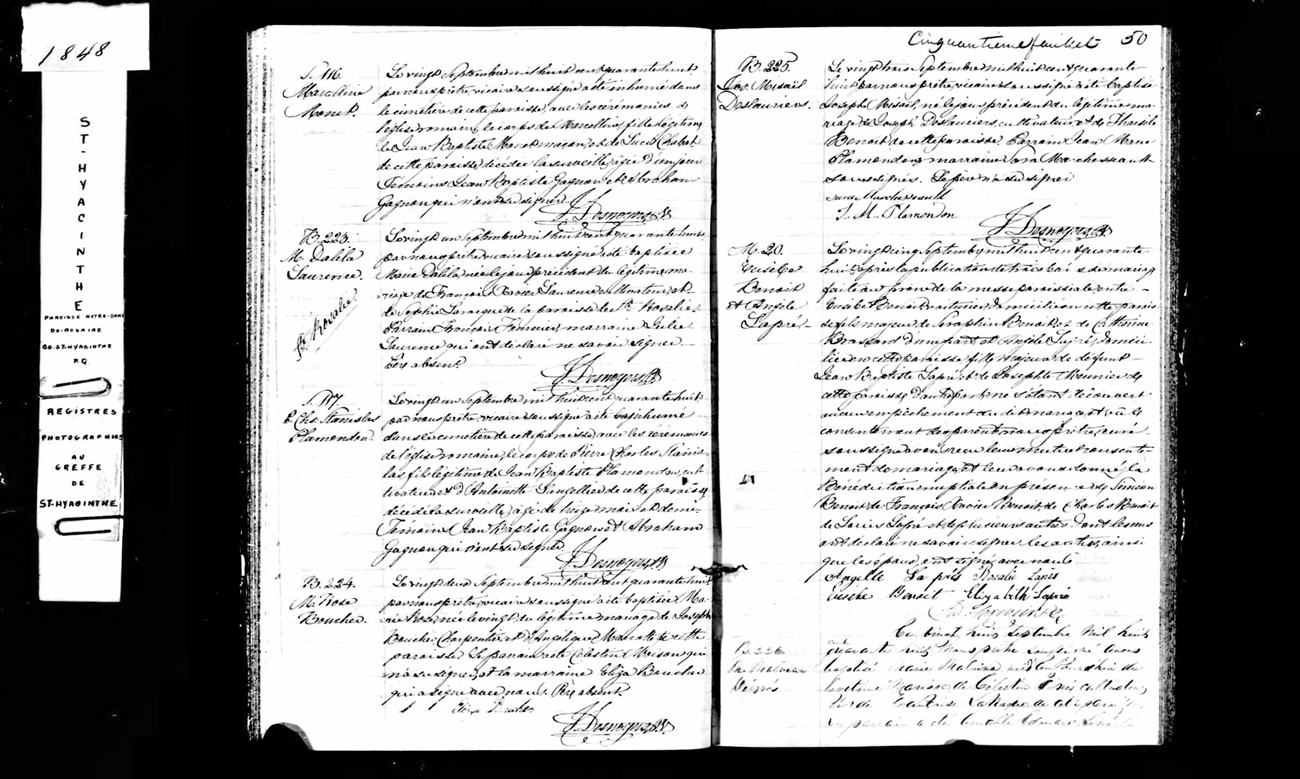 1848
ST-HYACINTHE
PAROISSE NOTRE-DAME
DU-ROSAIRE
CO. ST-HYACINTHE
P.Q
REGISTRES
PHOTOGRAPHIÉS
AU
GREFFE
DE
ST-HYACINTHE
S. 116.
Marcelline
Monet.
Le vingt Septembre mil huit cent quarante huit
par nous prêtre, vicaire soussigné a été inhumé dans
le cimetière de cette paroisse, avec les cérémonies de
l'église romaine, le corps de Marcelline fille légitime
de Jean Baptiste Monet maçon, et de Lucie Chabot
de cette paroisse, décédée la surveille, agée d'un jour
Témoins Jean Baptiste Gagnon et Abraham
Gagnon qui n'ont su signer
J. Desnoyers Ptr
B. 223.
M. Dalila
Laurence.
Ste Rosalie
Le vingt un Septembre mil huit cent quarante huit
par nous prêtre, vicaire soussigné a été baptisée
Marie Dalila, née le jour précédent du légitime ma-
riage de François Xavier Laurence cultivateur, et
de Sophie Larocque de la paroisse de Ste Rosalie
Parrain François Fournier, marraine Julie
Laurence qui ont déclaré ne savoir signer
Père absent.
J. Desnoyers Ptr
S. 117.
P. Chs. Stanislas
Plamondon.
Le vingt un Septembre mil huit cent quarante huit
par nous prêtre, vicaire soussigné a été inhumé
dans le cimetière de cette paroisse avec les cérémonies
de l'église romaine, le corps de Pierre Charles Stanis-
las fils légitime de Jean Baptiste Plamondon, cul
tivateur, et d'Antoinette Letellier de cette paroisse
décédé la surveille, agé de treize mois et demi
Témoins Jean Baptiste Gagnon et Abraham
Gagnon qui n'ont su signer
J. Desnoyers Ptr
B. 224.
M. Rose
Boucher.
Le vingt deux Septembre mil huit cent quarante huit
par nous prêtre, vicaire soussigné a été baptisée Ma-
rie Rose, née le vingt du légitime mariage de Joseph
Boucher Charpentier, et d'Angélique Marcotte de cette
paroisse. Le parrain a été Célestin qui
n'a su signer, et la marraine Eliza Boucher
qui a signé avec nous. Père absent.
Eliza Boucher
J. Desnoyers Ptr
Cinquantième feuillet 50
B. 225.
Jos. Misaël
Deslauriers.
Le vingt trois Septembre mil huit cent quarante
huit par nous prêtre, vicaire soussigné a été baptisé
Joseph Misaël, né le jour précédent du légitime ma-
riage de Joseph Deslauriers, cultivateur et de Tharsile
Benoit de cette paroisse. Parrain Jean Marie
Plamondon, marraine Sara Marchesseault
soussignés. Le père n'a su signer
Sara Marchesseault
J. M. Plamondon
J. Desnoyers Ptr
M. 20.
Eusèbe
Benoit
et Angèle
Lapré
Le vingt cinq Septembre mil huit cent quarante
huit, après la publication de trois bans de mariage
faite au prone de la messe paroissiale entre
Eusèbe Benoit domicilié en cette parois-
se fils majeur de Séraphin Benoit et de Catherine
Brassard d'une part, et Angèle Lapré, domici-
liée en cette paroisse, fille majeure de défunt
Jean Baptiste Lapré et de Josephte Meunier de
cette paroisse d'autre part, ne s'étant découvert
aucun empêchement au dit mariage, et vu le
consentement des parents, nous prêtre, curé
soussigné avons reçu leur mutuel consente-
ment de mariage, et leur avons donné la
Bénédiction nuptiale en présence de Siméon
Benoit, de François Xavier Benoit, de Charles Benoit
de Louis Lapré et de plusieurs autres dont les uns
ont déclaré ne savoir signer, les autres, ainsi
que les époux, ont signé avec nous
Angelle La prés Rosalie Lapré
Eusèbe Benoit Elizabeth Lapré
B. 226
Le vingt six Septembre mil huit
cent quarante huit nous prêtre soussigné avons
baptisé Marie Malvina née du
légitime Mariage de Célestin cultivateur,
et de de cette paroisse
Le parrain a été